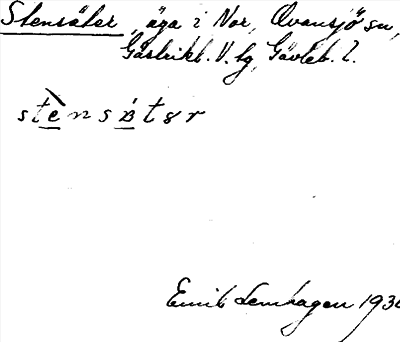 Stensäter, äga i Nor, Ovansjö sn,
Gästrikl. V. tg, Gävleb. l.
stènsätər
Emil Lenhagen 193